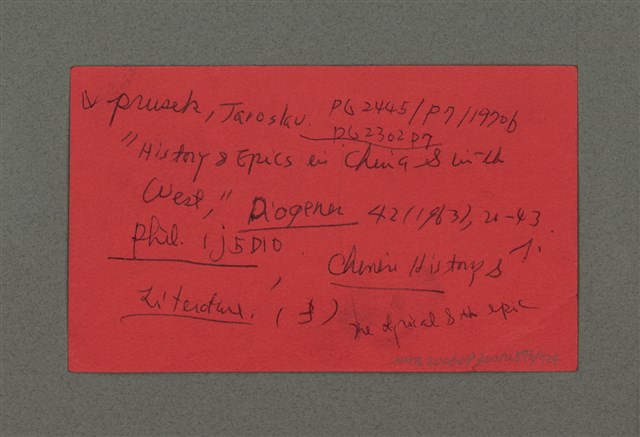 ✓ Prusek, Jaroslav. PL2445/P7/1970b
PL2302P7
"History & Epics in China & in the
West," Diogenes 42 (1963), 20-43
Phil. 1j5D10
Chinese History &
Literature. ( )
The lyrical & the epic